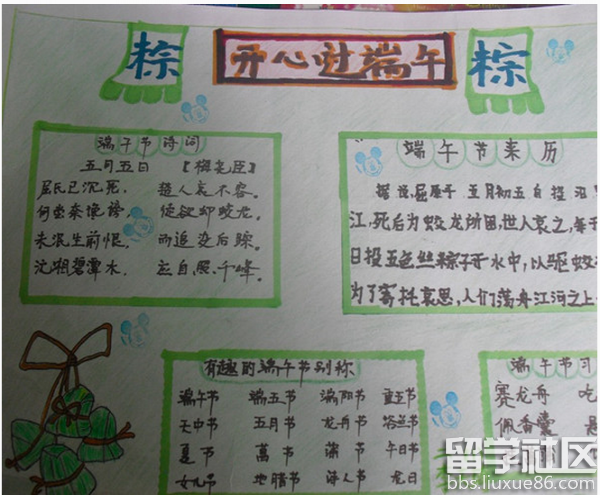 粽
开心过端午
粽
端午节诗词
五月五日 【梅尧臣】
屈氏已沉死， 楚人哀不容。
何尝奈谗谤， 使欲却蛟龙。
未泯生前恨， 而追没后踪。
沈湘碧潭水， 应自照千峰。
端午节来历
据说屈原于五月初五自投汨
江，死后为蛟龙所困，世人哀之，每于
日投五色丝粽子于水中，以驱蛟
为了寄托哀思，人们荡舟江河之上
有趣的端午节别称
端午节 端五节 端阳节 重五节
天中节 五月节 龙舟节 浴兰节
夏节 菖节 蒲节 午日节
女儿节 地腊节 诗人节 龙日
端午节习
赛龙舟 吃
佩香囊 悬
留学社区
bbs.liuxue86.com